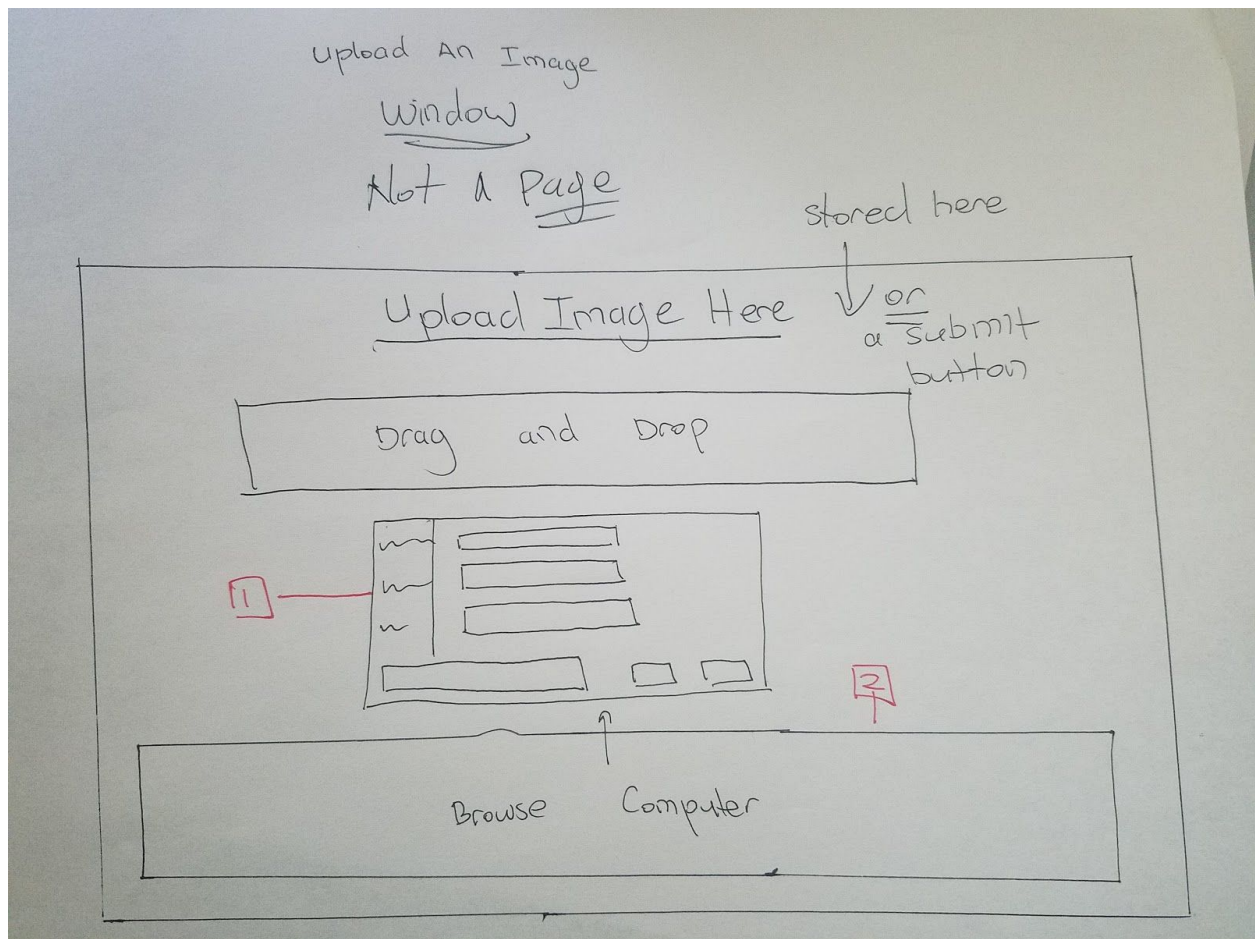 Upload An Image
Window
Not a Page
stored here
Upload Image Here
or
a submit
button
Drag and Drop
1
2
Browse Computer